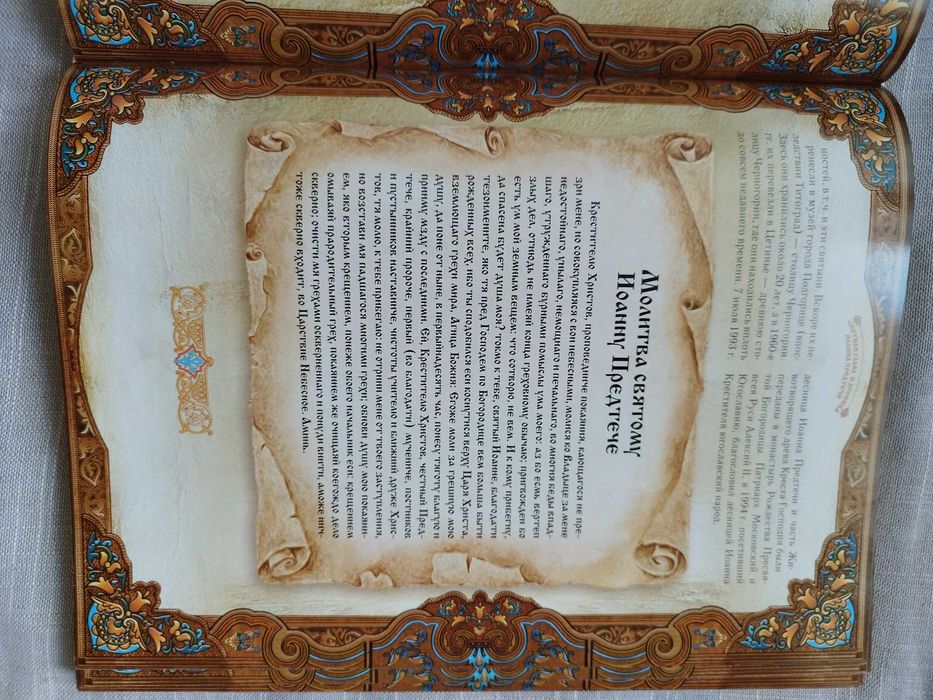 ностей, в т.ч. и эти святыни. Вскоре их пе-
ренесли в музей города Подгорице (впос-
ледствии Титоград) — столицу Черногории.
Здесь они хранились около 20 лет, а в 1960-е
гг. их перевезли в Цетинье — древнюю сто-
лицу Черногории, где они находились вплоть
до совсем недавнего времени. 7 июля 1993 г.
десница Иоанна Предтечи и часть Жи-
вотворящего древа Креста Господня были
переданы в монастырь Рождества Пресвя-
той Богородицы. Патриарх Московский и
всея Руси Алексий II, в 1994 г. посетивший
Югославию, благословил десницей Иоанна
Крестителя югославский народ.
Молитва святому
Иоанну Предтече
Крестителю Христов, проповедниче покаяния, кающагося не пре-
зри мене, но совокупляяся с вои небесными, молися ко Владыце за мене
недостойнаго, унылаго, немощнаго и печальнаго, во многия беды впад-
шаго, утружденнаго бурными помыслы ума моего: аз бо есмь вертеп
злых дел, отнюдь не имеяй конца греховному обычаю; пригвожден бо
есть ум мой земным вещем: что сотворю, не вем. И к кому прибегну,
да спасена будет душа моя? токмо к тебе, святый Иоанне, благодати
тезоимените, яко тя пред Господем по Богородице вем больша быти
рожденных всех, ибо ты сподобился еси коснутися верху Царя Христа,
вземлющаго грехи мира, Агнца Божия: Егоже моли за грешную мою
душу, да поне отныне, первынадесять час, понесу тяготу благую и
прииму мзду с последними. Ей, Крестителю Христов, честный Пред-
тече, крайний пророче, первый (во благодати) мучениче, постников
и пустынников наставниче, чистоты учителю и ближний друже Хрис-
тов, тя молю, к тебе прибегаю: не отрини мене от твоего заступления,
но возстави мя падшагося многими грехи; обнови душу мою покаяни-
ем, яко вторым крещением, понеже обоего начальник еси: крещением
омываяй прародительный грех, покаянием же очищаяй коегождо дело
скверно; очисти мя грехами оскверненнаго и понуди внити, аможе нич-
тоже скверно входит, во Царствие Небесное. Аминь.